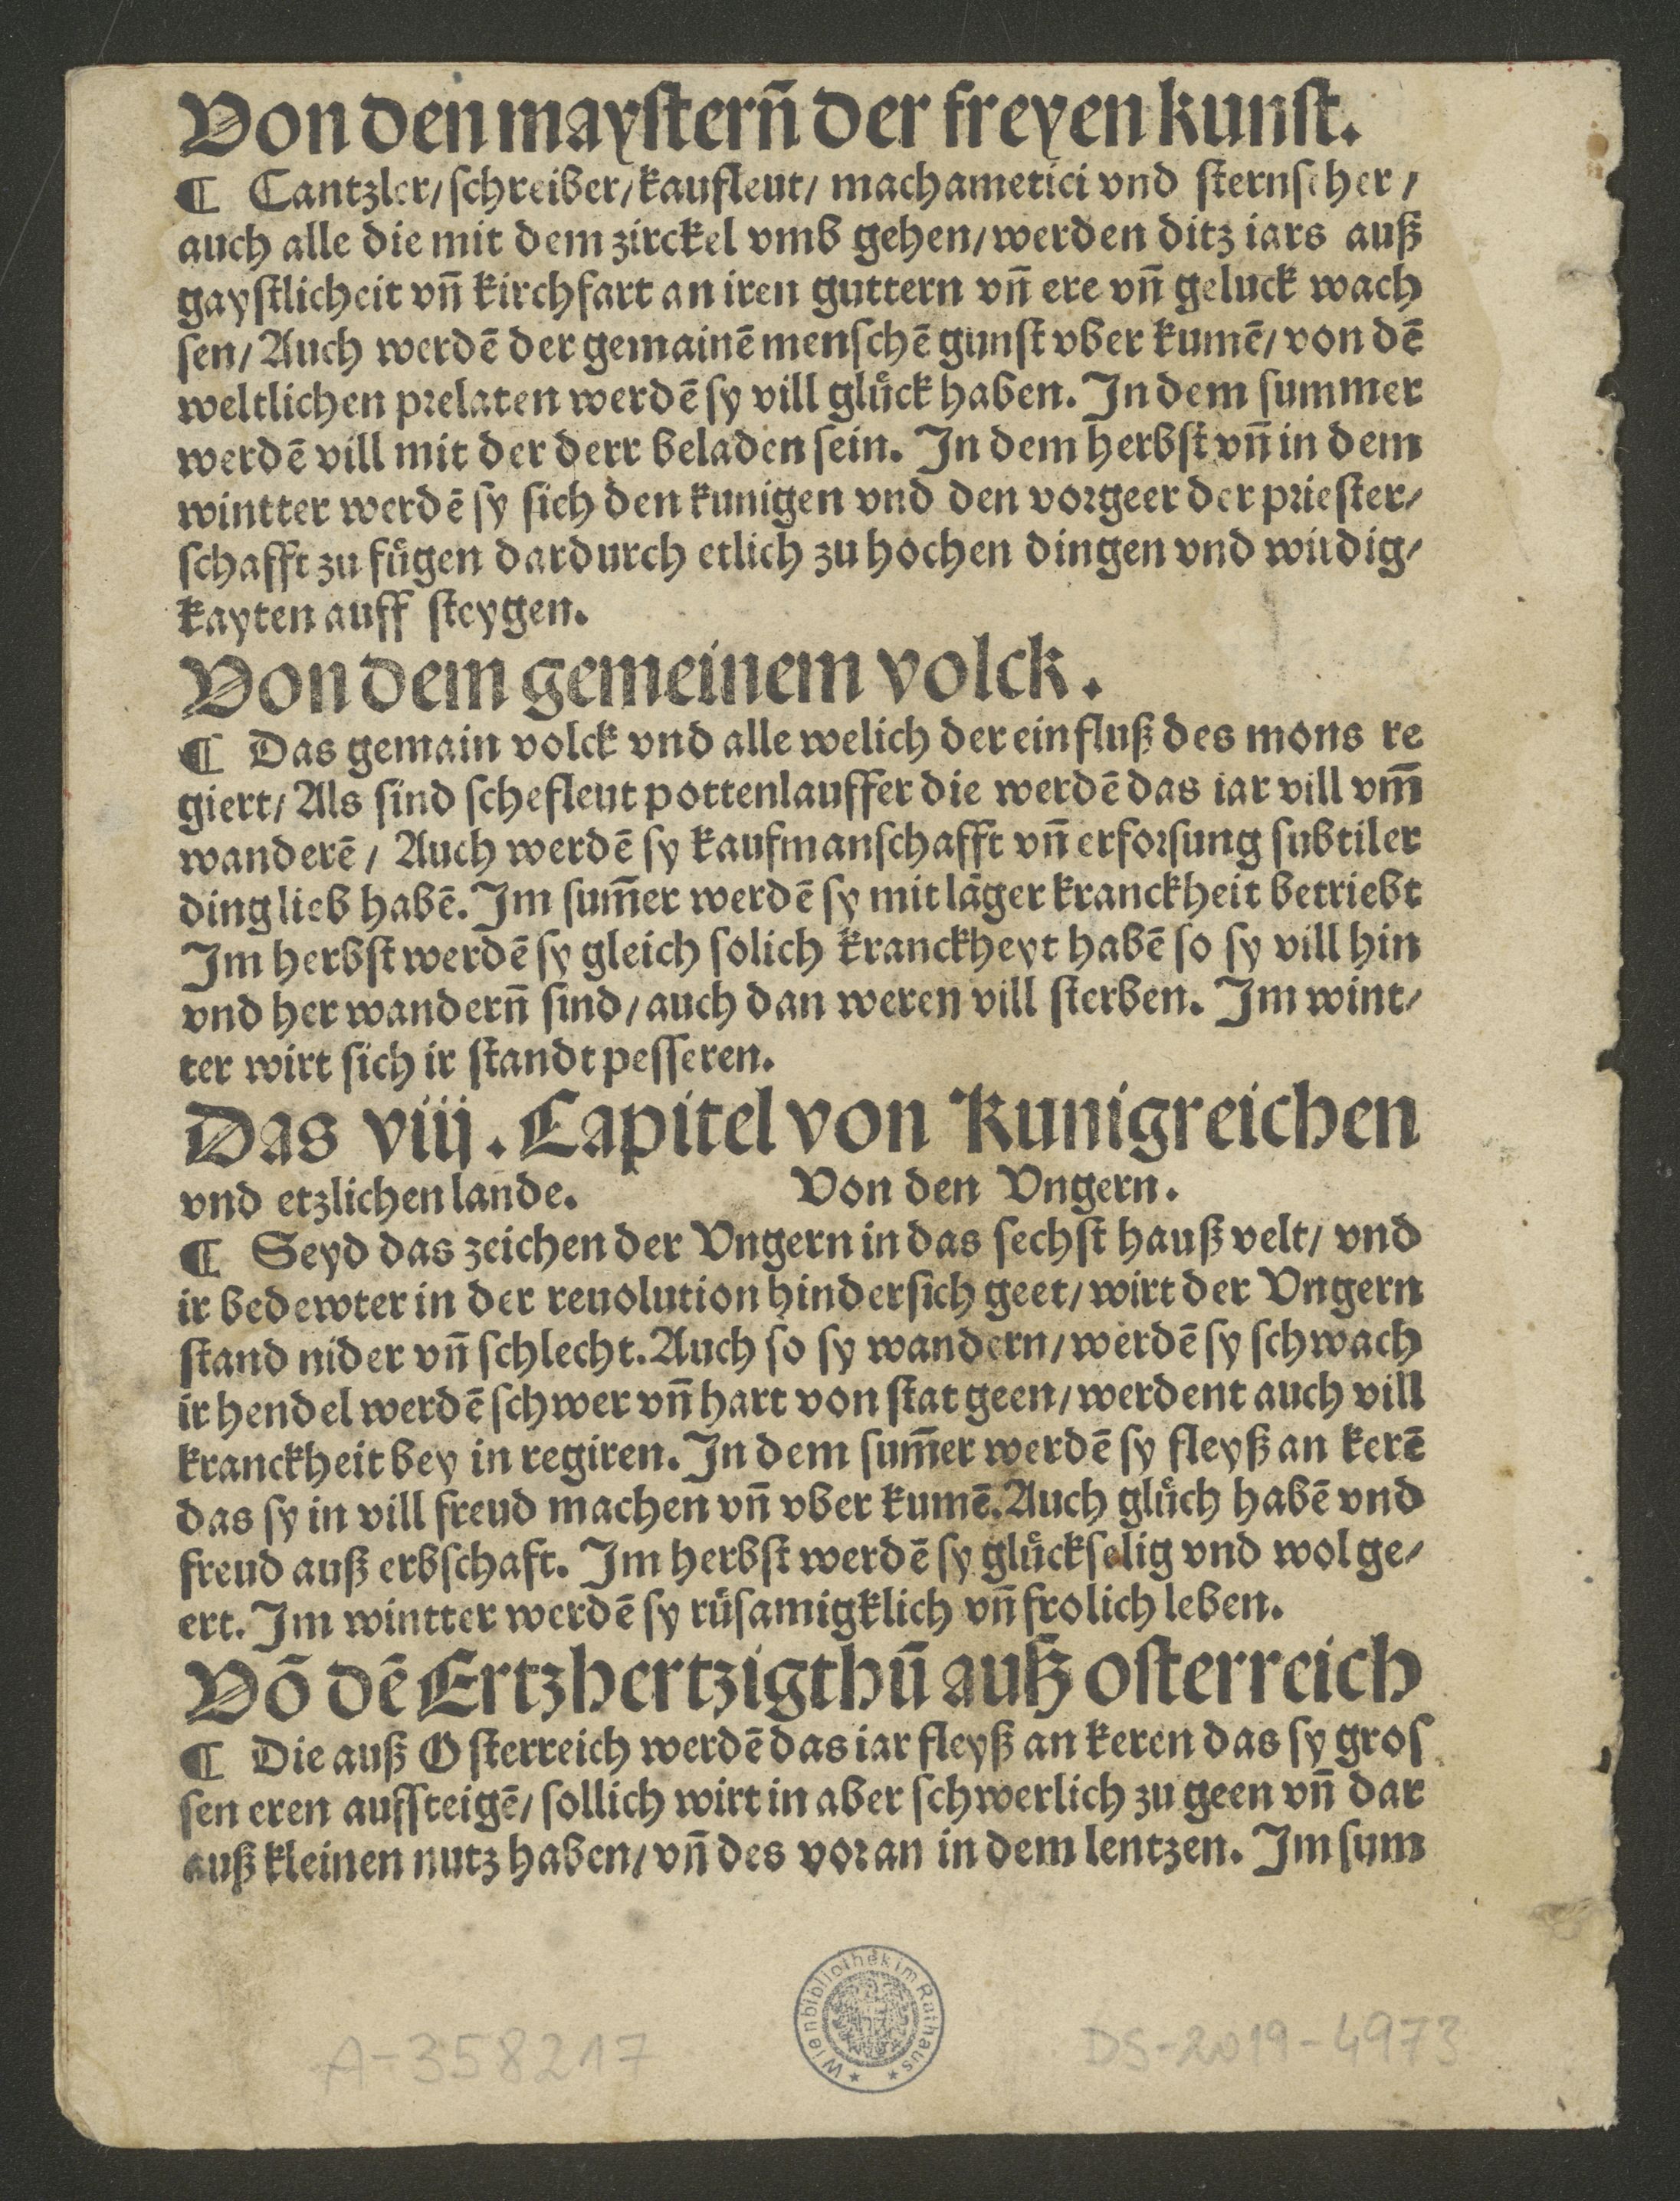 Von den mayſtern̄ der freyen kunſt.
¶ Cantzler/ ſchreiber/ kaufleut/ machametici vnd ſternſeher/
auch alle die mit dem zirckel vmb gehen/ werden ditz iars auß
gayſtlicheit vn̄ kirchfart an iren guttern vn̄ ere vn̄ geluck wach
ſen/ Auch werdē der gemainē menſchē gunſt vber kumē/ von dē
weltlichen prelaten werdē ſy vill gluͤck haben. In dem ſummer
werdē vill mit der derr beladen ſein. In dem herbſt vn̄ in dem
wintter werdē ſy ſich den kunigen vnd den vorgeer der prieſter/
ſchafft zu fuͤgen dardurch etlich zu hochen dingen vnd wirdig/
kayten auff ſteygen.
Von dem gemeinem volck.
¶ Das gemain volck vnd alle welich der einfluß des mons re
giert/ Als ſind ſchefleut pottenlauffer die werdē das iar vill vm̄
wanderē/ Auch werdē ſy kaufmanſchafft vn̄ erforſung ſubtiler
ding lieb habē. Im ſum̄er werdē ſy mit lāger kranckheit betriebt
Im herbſt werdē ſy gleich ſolich kranckheyt habē ſo ſy vill hin
vnd her wandern̄ ſind/ auch dan weren vill ſterben. Im wint/
ter wirt ſich ir ſtandt peſſeren.
Das viij. Capitel von Kunigreichen
vnd etzlichen lande. Von den Vngern.
¶ Seyd das zeichen der Vngern in das ſechſt hauß velt/ vnd
ir bedewter in der reuolution hinderſich geet/ wirt der Vngern
ſtand nider vn̄ ſchlecht. Auch ſo ſy wandern/ werdē ſy ſchwach
ir hendel werdē ſchwer vn̄ hart von ſtat geen/ werdent auch vill
kranckheit bey in regiren. In dem ſum̄er werdē ſy fleyß an kerē
das ſy in vill freud machen vn̄ vber kumē. Auch gluͤch habē vnd
freud auß erbſchaft. Im herbſt werdē ſy gluͤckſelig vnd wol ge/
ert. Im wintter werdē ſy ruͤſamigklich vn̄ frolich leben.
Vō dē Ertzhertzigthū auß oſterreich
¶ Die auß Oſterreich werdē das iar fleyß an keren das ſy groſ
ſen eren aufſteigē/ ſollich wirt in aber ſchwerlich zu geen vn̄ dar
auß kleinen nutz haben/ vn̄ des voran in dem lentzen. Im ſum
Wienbibliothek im Rathaus
A-358217 DS-2019-4973